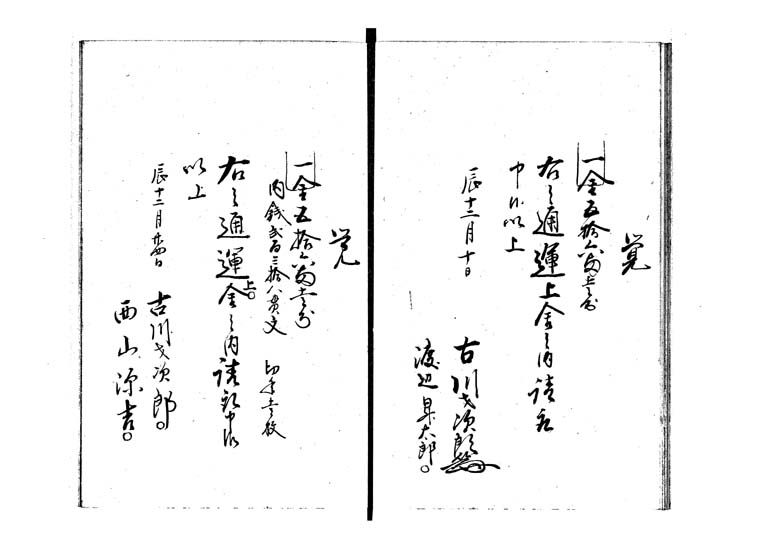 覚
一金五拾六両壱分
右之通運上金之内請取
申候以上
辰十二月十日
古川才次郎
渡辺 才太郎
覚
一金五拾六両壱分
内銭弐百三拾八貫文 切手壱枚
右之通運上金之内請取申候
以上
辰十二月廿四日
古川才次郎
西山源吉